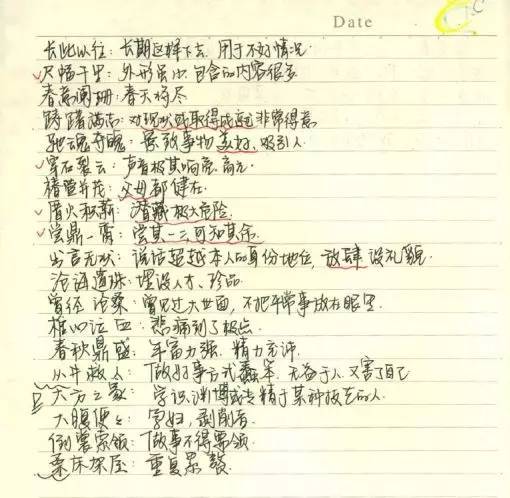 Date
长此以往：长期这样下去，用于不好情况.
尺幅千里：外形虽小，包含的内容很多
春意阑珊：春天将尽
踌躇满志：对现状或取得成就非常得意
驰魂夺魄：景致事物美好、吸引人.
穿石裂云：声音极其响亮、高亢.
椿萱并茂：父母都健在.
厝火积薪：潜藏极大危险.
尝鼎一脔：尝其一二可知其余.
出言无状：说话超越本人的身份地位，放肆没礼貌.
沧海遗珠：埋没人才、珍品
曾经沧桑：曾见过大世面，不把平常事放在眼里.
椎心泣血：悲痛到了极点.
春秋鼎盛：年富力强，精力充沛.
从井救人：做好事方式蠢笨，无益于人又害了自己
大方之家：学识渊博或专精于某种技艺的人.
大腹便便：孕妇，剥削者.
倒裳索领：做事不得要领.
叠床架屋：重复累赘.